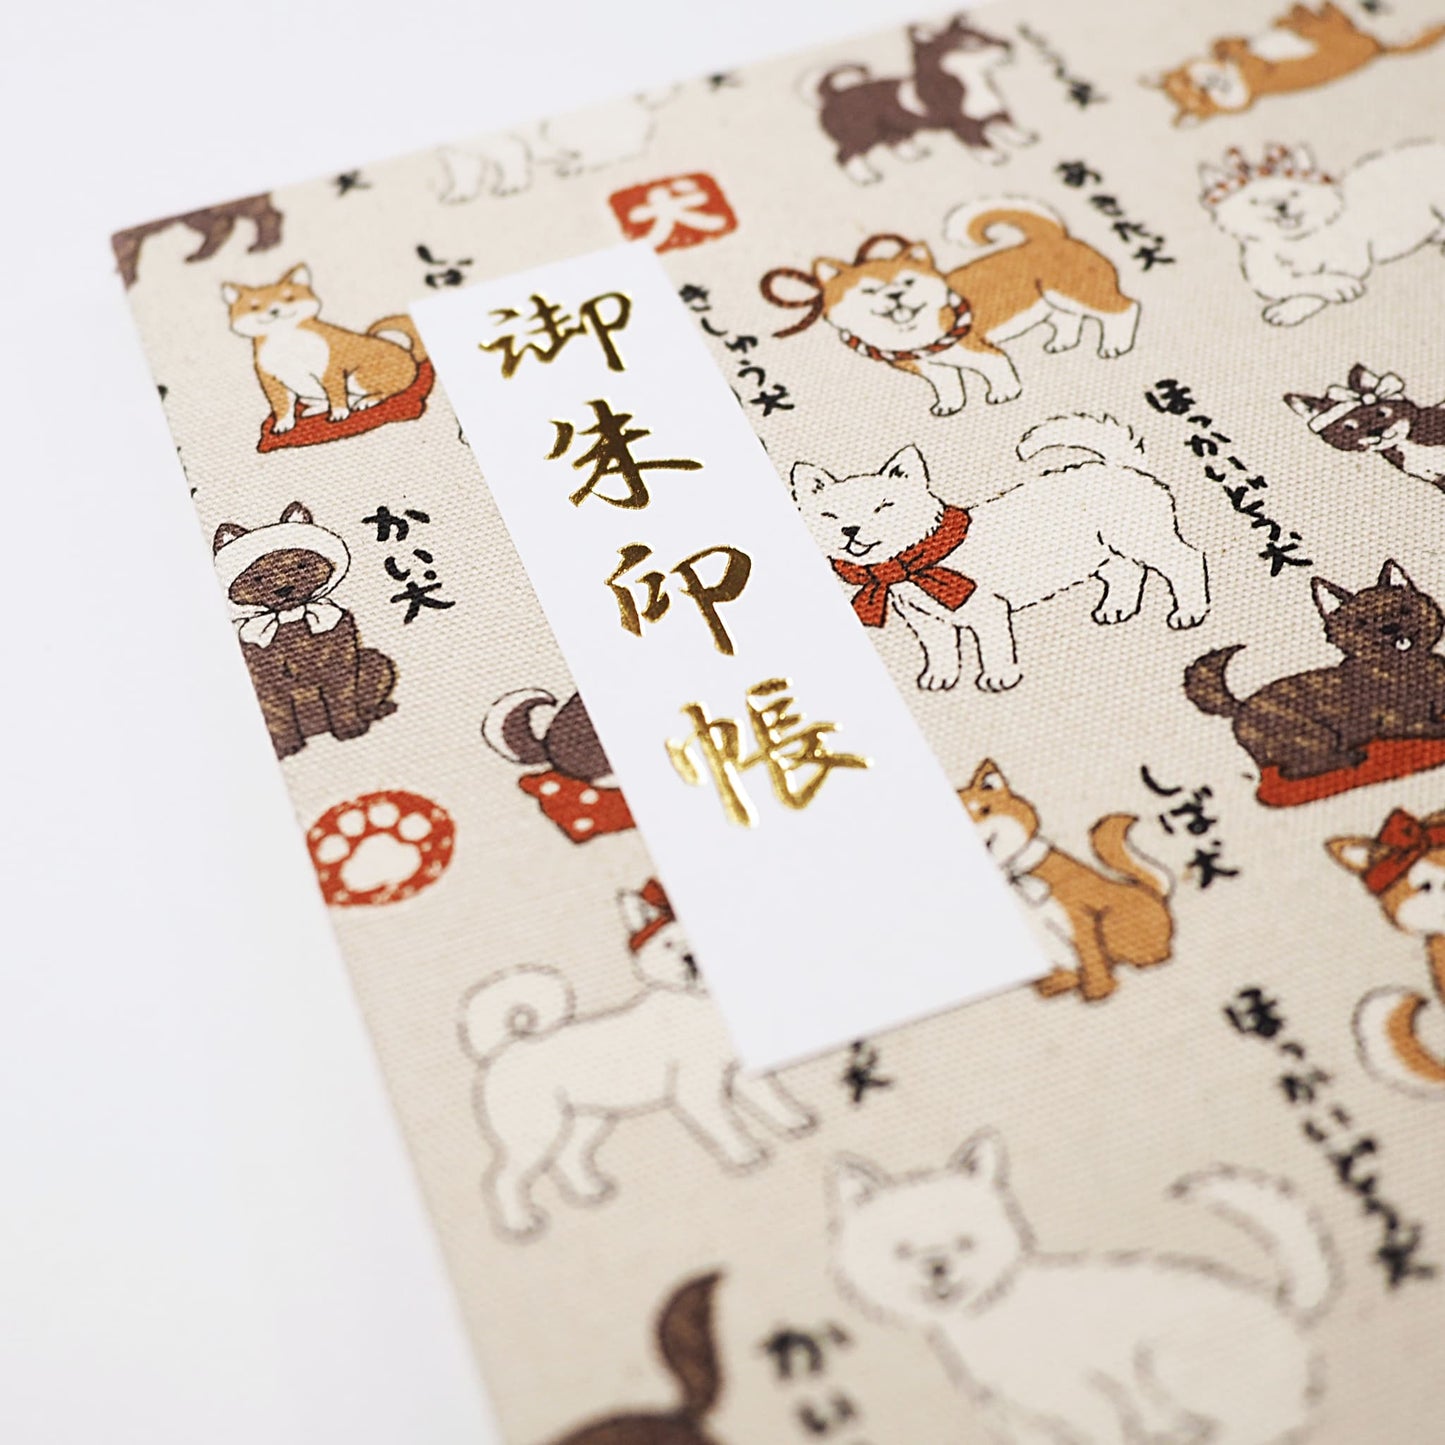 御朱印帳
犬
犬
しば
きしゅう犬
あきた犬
ほっかいどう犬
かい犬
しば犬
ほっかいどう犬
犬
かい